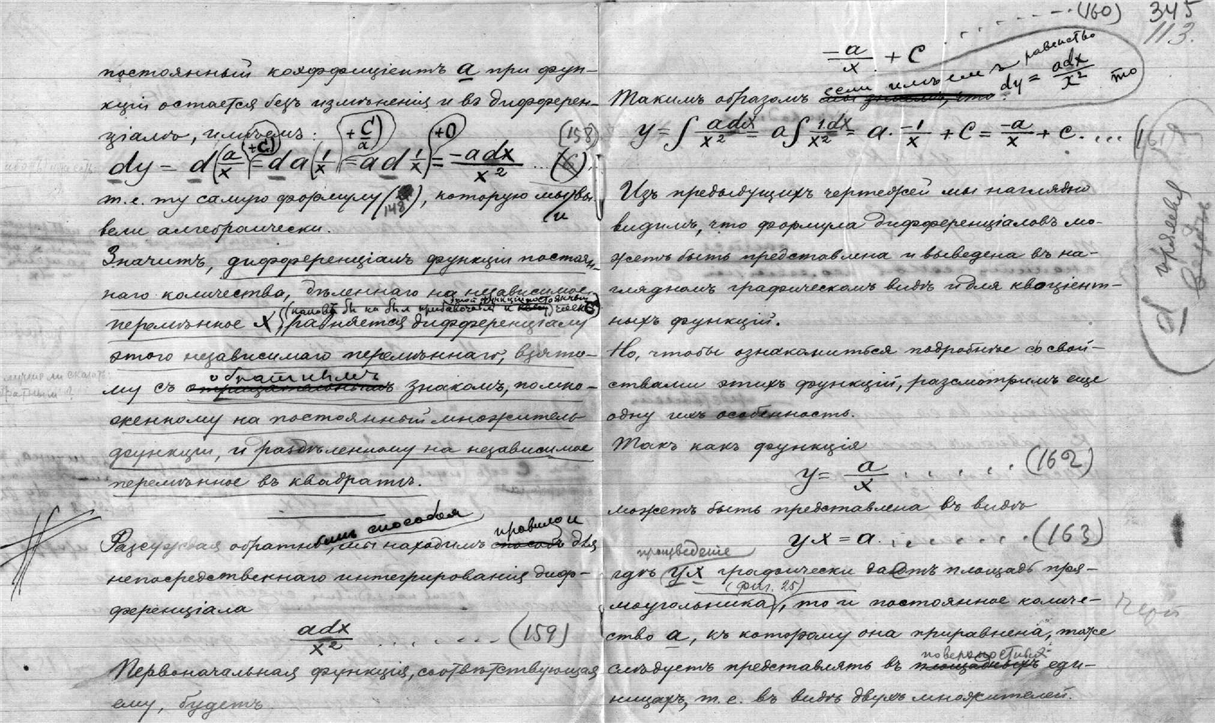 постоянный коэффиціентъ a при функ-
ціи остается безъ измѣненія и въ дифферен-
ціалѣ, имѣемъ:
dy = d(a/x + C) = da(1/x + C/a) = ad(1/x + 0) = -adx/x² ... (158)
т.е. ту самую формулу (148), которую мы вы-
вели и алгебраически.
Значитъ, дифференціалъ функціи постоян-
наго количества, дѣленнаго на независимое
перемѣнное X, равняется дифференціалу
этого независимаго перемѣннаго, взято-
му съ обратнымъ знакомъ, помно-
женному на постоянный множитель
функціи, и раздѣленному на независимое
перемѣнное въ квадратѣ.
Разсуждая обратнымъ способомъ, мы находимъ правило и для
непосредственнаго интегрированія диф-
ференціала
adx/x² ... (159)
Первоначальная функція, соотвѣтствующая
ему, будетъ
345
113.
-a/x + C ... (160)
Такимъ образомъ если имѣемъ равенство dy = adx/x² то
y = ∫ adx/x² = a∫ 1dx/x² = a · -1/x + C = -a/x + C ....
Изъ предыдущихъ чертежей мы наглядно
видимъ, что формула дифференціаловъ мо-
жетъ быть представлена и выведена въ на-
глядномъ графическомъ видѣ и для квоціент-
ныхъ функцій.
Но, чтобы ознакомиться подробнѣе со свой-
ствами этихъ функцій, разсмотримъ еще
одну ихъ особенность.
Такъ какъ функція
y = a/x ...... (162)
можетъ быть представлена въ видѣ
yx = a ........ (163)
гдѣ произведеніе yx графически даетъ площадь пря-
моугольника (фиг. 25), то и постоянное количе-
ство a, къ которому она приравнена, тоже
слѣдуетъ представлять въ поверхностныхъ еди-
ницахъ, т.е. въ видѣ двухъ множителей.